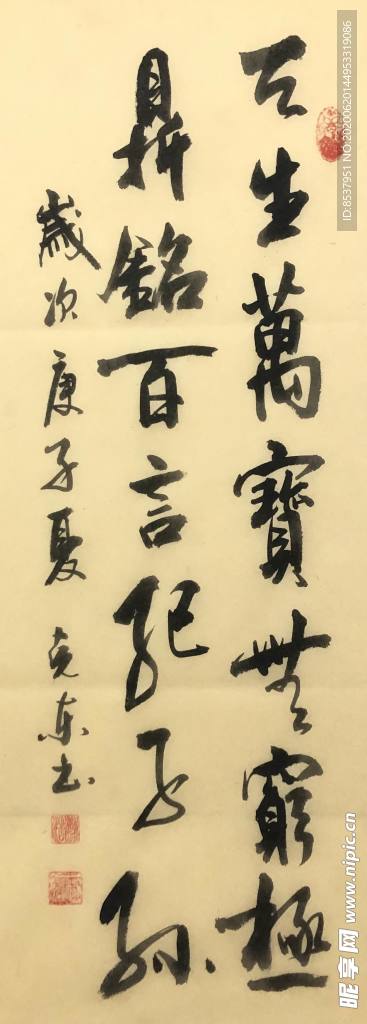 天生萬寶無窮極
鼎銘百言紀子孫
歲次庚子夏 克東書
ID:8537951 NO:20200620144953319086
昵享网 www.nipic.cn